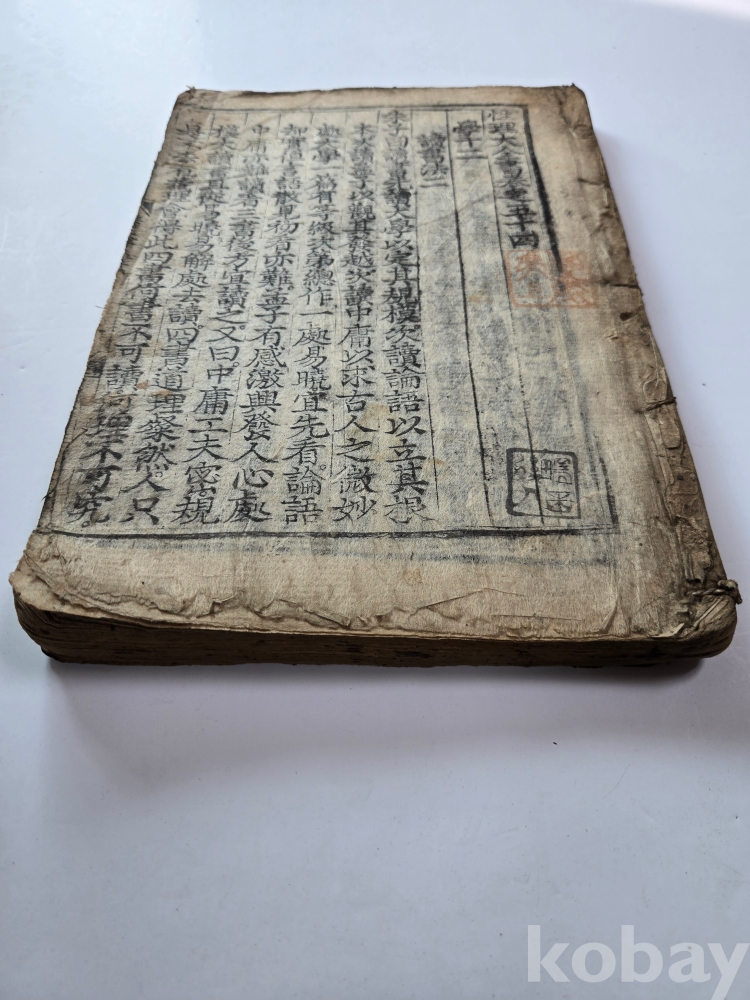 性理大全書卷之五十四
學十二
讀書法二
朱子曰讀書先讀大學以定其規模次讀論語以立其根
本次讀孟子以觀其發越次讀中庸以求古人之微妙
處大學一篇有等級次第總作一處易曉宜先看論語
却實但言語散見初看亦難孟子有感激興發人心處
中庸亦難讀看三書後方宜讀之又曰中庸工夫密規
模大讀書且從易曉易解處去讀四書道理粲然人只
是不去看若理會得此四書何書不可讀何理不可究
kobay